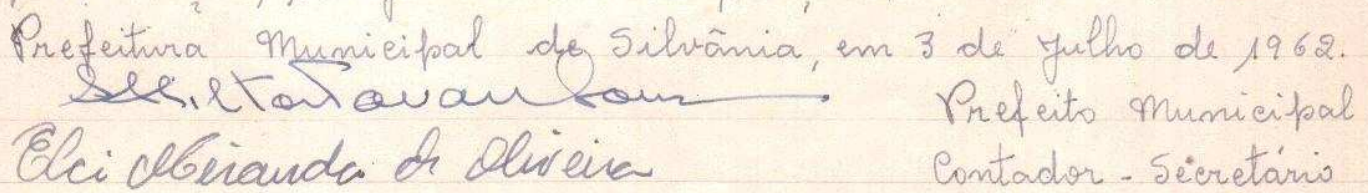 Prefeitura Municipal de Silvânia, em 3 de Julho de 1962.
Prefeito Municipal
Elci Miranda de Oliveira Contador - Secretário